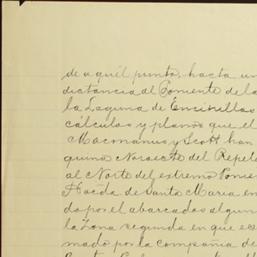 de aquél punto, hasta un
distancia al Poniente de la
la Laguna de Encinillas
cálculos y planos que el
Macmanus y Scott han
quina Noroeste del Repele
al Norte del estremo Ponie
Hacda de Santa Maria en
do por el abarcados algun
la Zona segunda en que es
mado por la compañia de